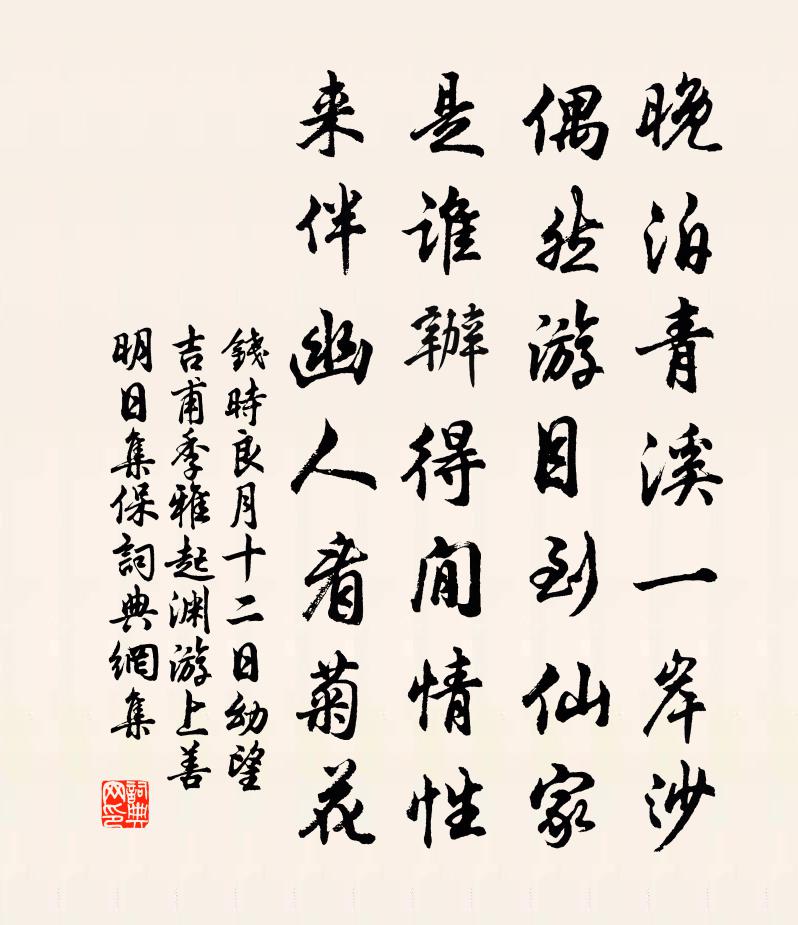 晚泊青溪一岸沙
偶然游目到仙家
是谁辦得闲情性
来伴幽人看菊花
錢時良月十二日幼望
吉甫季雅起渊游上善
明日集保詞典網集
詞典网印